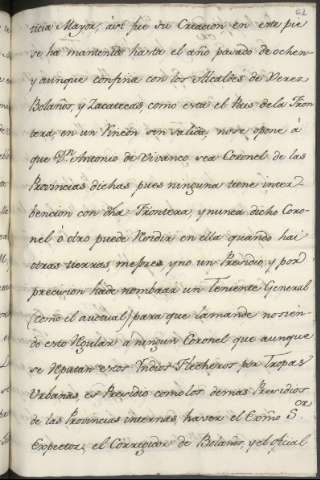 62
ticia Mayor, así fue su Creacion en este pie
se ha mantenido hasta el año pasado de ochen-
y aunque confina con los Alcaldes de Xerez
Bolaños, y Zacatecas, como esta el Pais de la Fron
tera, en un Rincon sin salida, no se opone á
que Dn. Antonio de Vivanco sea Coronel de las
Provincias dichas pues ninguna tiene inter
bencion con dha. Frontera, y nunca dicho Coro-
nel ó otro puede Residir en ella quando hai
otras tierras mejores y no un Presidio, y por
precision hade nombrar un Teniente General
(como el auctual) para que la mande no sien-
do esto Regular a ningun Coronel que aunque
se Reputan estos Indios Flecheros por Tropas
Urbanas, es Presidio como los demas Presidios
de las Provincias internas, haser el Exmo Sor
Expector, el Corregidor de Bolaños, y el oficial